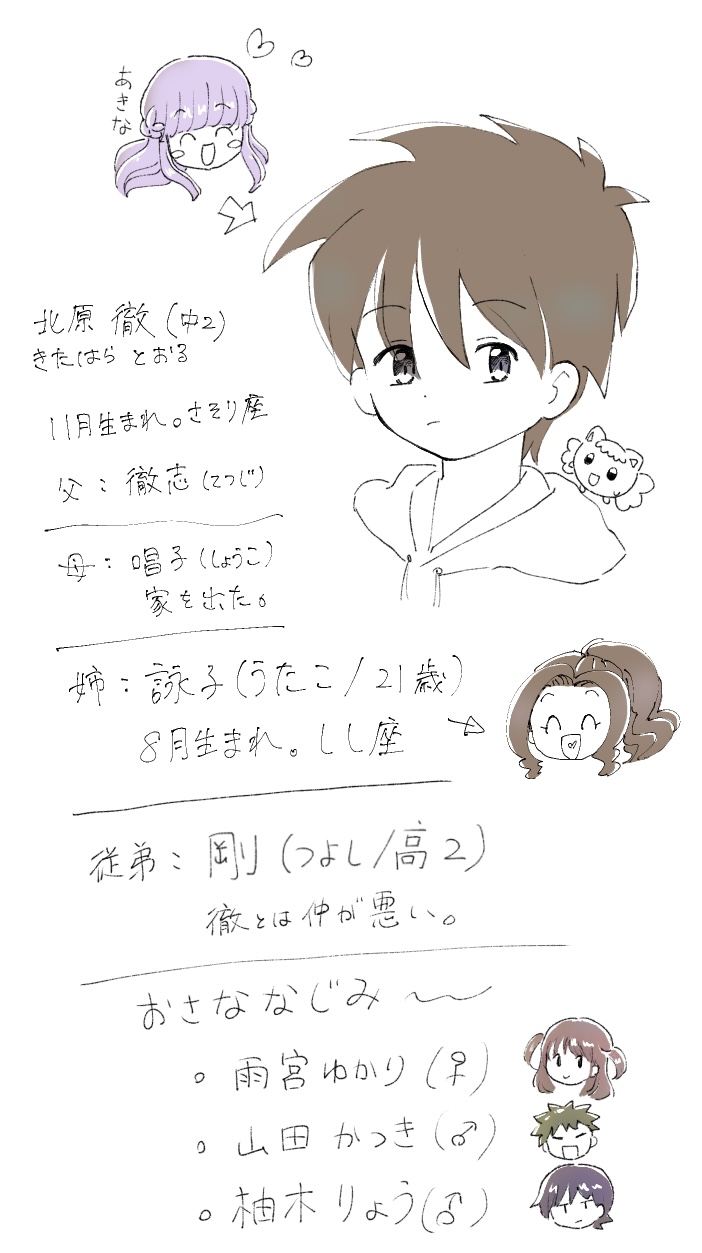 あきな
北原 徹(中2)
きたはら とおる
11月生まれ。さそり座
父：徹志(てつじ)
母：唱子(しょうこ)
家を出た。
姉：詠子(うたこ/21歳)
8月生まれ。しし座
従弟：剛(つよし/高2)
徹とは仲が悪い。
おさななじみ〜
。雨宮ゆかり(♀)
。山田かつき(♂)
。柚木りょう(♂)